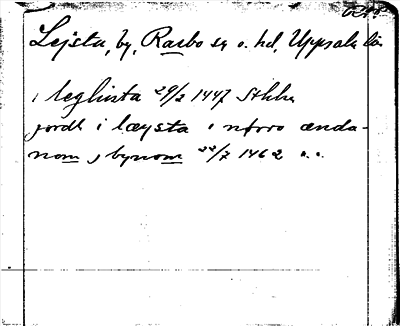 Lejsta, by, Rasbo sn o. hd, Uppsala län
i leglinta 29/2 1447 Sthlm
jordh i læysta i nørro ænda-
nom j bynom 22/7 1462 o. o.